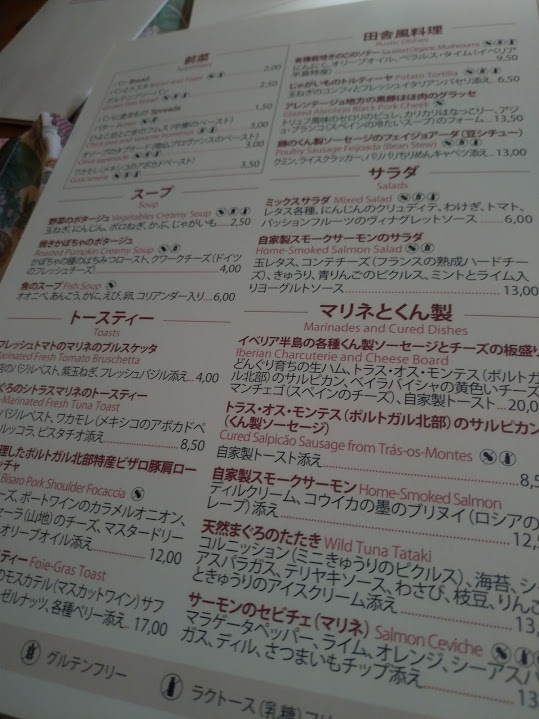 前菜
Appetizers
パン Bread
2,00
パンとトスタ Bread and Toast
グルテンフリーパン
Gluten free Bread
1,50
パンに塗るもの Spreads
バター Butter
3,00
ひよこ豆とごまのフムス(中東のペースト)
3,00
オリーブのタプナード(南仏、プロヴァンスのペースト)
Olive Tapenade
ワカモレ(メキシコのアボカドペースト)
3,50
Guacamole
スープ
Soup
野菜のポタージュ Vegetables Creamy Soup
玉ねぎ、にんじん、ポロねぎ、かぶ、じゃがいも....2,50
焼きかぼちゃのポタージュ
Roasted Pumpkin Creamy Soup
かぼちゃの種のはちみつロースト、クワークチーズ(ドイツ
のフレッシュチーズ) 4,00
魚のスープ Fish Soup
オオニベ、あんこう、かに、えび、卵、コリアンダー入り...6,00
トースティー
Toasts
フレッシュトマトのマリネのブルスケッタ
Marinated Fresh Tomato Bruschetta
バジルペスト、紫玉ねぎ、フレッシュバジル添え... 4,00
ぐろのシトラスマリネのトースティー
-Marinated Fresh Tuna Toast
バジルペスト、ワカモレ(メキシコのアボカドペ
ルッコラ、ピスタチオ添え 8,50
理したポルトガル北部特産ビザロ豚肩ロー
ッチャ
Bisaro Pork Shoulder Focaccia
ーズ、ポートワインのカラメルオニオン、
ーラ(山地)のチーズ、マスタードリー
オリーブオイル添え 12,00
ティー Foie-Gras Toast
のモスカテル(マスカットワイン)サフ
ゼルナッツ、各種ベリー添え... 17,00
田舎風料理
Rustic Dishes
有機栽培きのこのソテー Sautéed Organic Mushrooms
にんにく、オリーブオイル、ベラルス・タイム(イベリア
半島特産) 9,50
じゃがいものトルティーヤ Potato Tortilla
玉ねぎのコンフィとフレッシュイタリアンパセリ添え 6,50
アレンテージョ地方の黒豚ほほ肉のグラッセ
Glazed Alentejo Black Pork Cheek
トリュフ風味のセロリのピュレ、カリカリはなっこりー、アジ
ョ・ブランコ(スペインの冷たいスープ)のフォーム 13,50
鶏のくん製ソーセージのフェイジョアーダ(豆シチュー)
Poultry Sausage Feijoada (Bean Stew)
クミン、ライスクラッカー、パリパリちりめんキャベツ添え... 13,00
サラダ
Salads
ミックスサラダ Mixed Salad
レタス各種、にんじんのクリュディテ、わけぎ、トマト、
パッションフルーツのヴィナグレットソース 6,00
自家製スモークサーモンのサラダ
Home-Smoked Salmon Salad
玉レタス、コンテチーズ(フランスの熟成ハードチー
ズ)、きゅうり、青りんごのピクルス、ミントとライム入
りヨーグルトソース 13,00
マリネとくん製
Marinades and Cured Dishes
イベリア半島の各種くん製ソーセージとチーズの板盛り
Iberian Charcuterie and Cheese Board
どんぐり育ちの生ハム、トラス・オス・モンテス(ポルトガ
ル北部)のサルピカン、ベイラバイシャの黄色いチーズ
マンチェゴ(スペインのチーズ)、自家製トースト... 20,0
トラス・オス・モンテス(ポルトガル北部)のサルピカン
(くん製ソーセージ)
Cured Salpicão Sausage from Trás-os-Montes
自家製トースト添え 8,5
自家製スモークサーモン Home-Smoked Salmon
ディルクリーム、コウイカの墨のブリヌイ(ロシアの
レープ)添え 12,5
天然まぐろのたたき Wild Tuna Tataki
コルニッション(ミニきゅうりのピクルス)、海苔、シー
アスパラガス、テリヤキソース、わさび、枝豆、りんご
ときゅうりのアイスクリーム添え 13,
サーモンのセビチェ(マリネ) Salmon Ceviche
マラゲータペッパー、ライム、オレンジ、シーアスパ
ガス、ディル、さつまいもチップ添え 13
グルテンフリー
ラクトース(乳糖)フリー